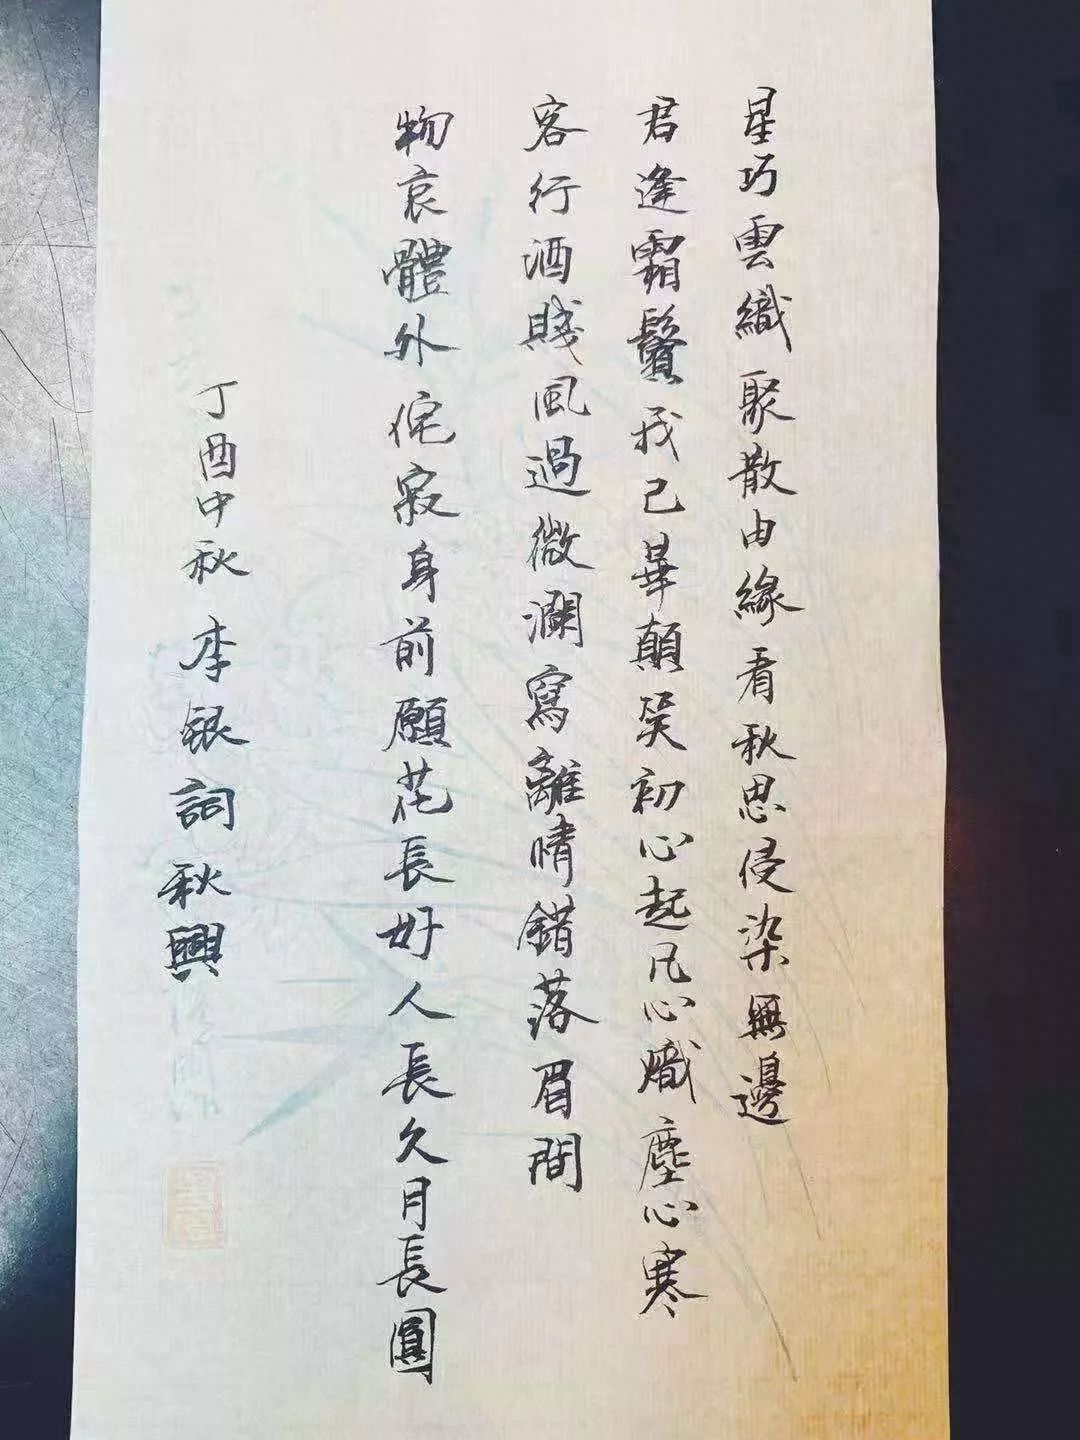 星巧雲織聚散由緣看秋思侵染無邊
君逢霜鬢我已華顛笑初心起凡心熾塵心寒
客行酒賤風過微瀾寫離情錯落眉間
物哀體外侘寂身前願花長好人長久月長圓
丁酉中秋李銀詞秋興